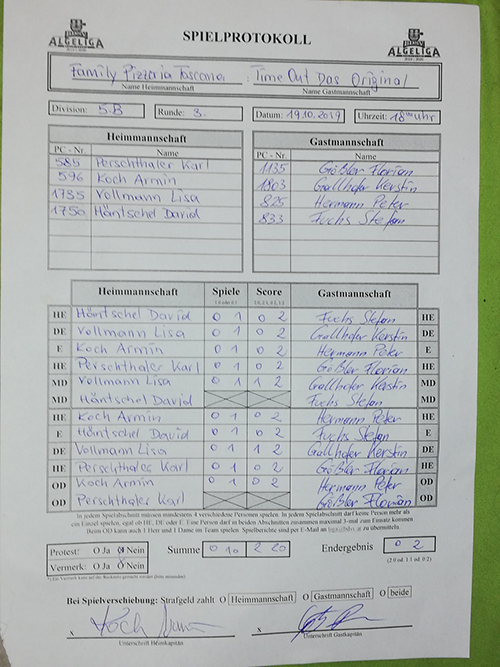 ALGELIGA
SPIELPROTOKOLL
ALGELIGA
Family Pizzaria Toscana : Time Out Das Original
Name Heimmannschaft Name Gastmannschaft
Division: 5.B Runde: 3. Datum: 19.10.2019 Uhrzeit: 18°° Uhr
Heimmannschaft Gastmannschaft
PC - Nr. Name PC - Nr. Name
585 Perschthaler Karl 1135 Gößler Florian
596 Koch Armin 1803 Grallhofer Kerstin
1735 Vollmann Lisa 825 Hermann Peter
1750 Häntschel David 833 Fuchs Stefan
Heimmannschaft Spiele Score Gastmannschaft
HE Häntschel David 0 1 0 2 Fuchs Stefan HE
DE Vollmann Lisa 0 1 0 2 Grallhofer Kerstin DE
E Koch Armin 0 1 0 2 Hermann Peter E
HE Perschthaler Karl 0 1 0 2 Gößler Florian HE
MD Vollmann Lisa 0 1 1 2 Grallhofer Kerstin MD
MD Häntschel David Fuchs Stefan MD
HE Koch Armin 0 1 0 2 Hermann Peter HE
E Häntschel David 0 1 0 2 Fuchs Stefan E
DE Vollmann Lisa 0 1 1 2 Grallhofer Kerstin DE
HE Perschthaler Karl 0 1 0 2 Gößler Florian HE
OD Koch Armin 0 1 0 2 Hermann Peter OD
OD Perschthaler Karl Gößler Florian OD
In jedem Spielabschnitt müssen mindestens 4 verschiedene Personen spielen. In jedem Spielabschnitt darf keine Person mehr als
ein Einzel spielen, egal ob HE, DE oder E. Eine Person darf in beiden Abschnitten zusammen maximal 3-mal zum Einsatz kommen
Beim OD kann auch 1 Herr und 1 Dame im Team spielen. Spielberichte sind per E-Mail an zu übermitteln.
Protest: O Ja O Nein Summe 0 10 2 20 Endergebnis 0 2
Vermerk: O Ja O Nein (2:0 od. 1:1 od. 0:2)
Bei Spielverschiebung: Strafgeld zahlt O Heimmannschaft O Gastmannschaft O beide
x Koch x
Unterschrift Heimkapitän Unterschrift Gastkapitän